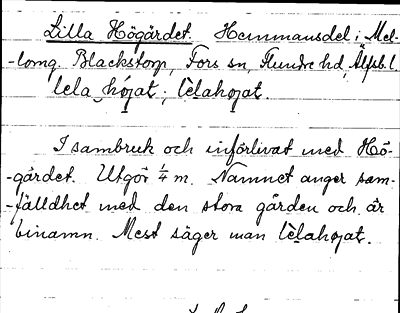 Lilla Högärdet. Hemmansdel i Mel-
-lomg. Blackstorp, Fors sn, Flundre hd, Älfsb. l.
lela hójat; lèlahojat.
I sambruk och införlivat med Hö-
-gärdet. Utgör 1/4 m. Namnet anger sam-
-fälldhet med den stora gården och är
binamn. Mest säger man lèlahojat.